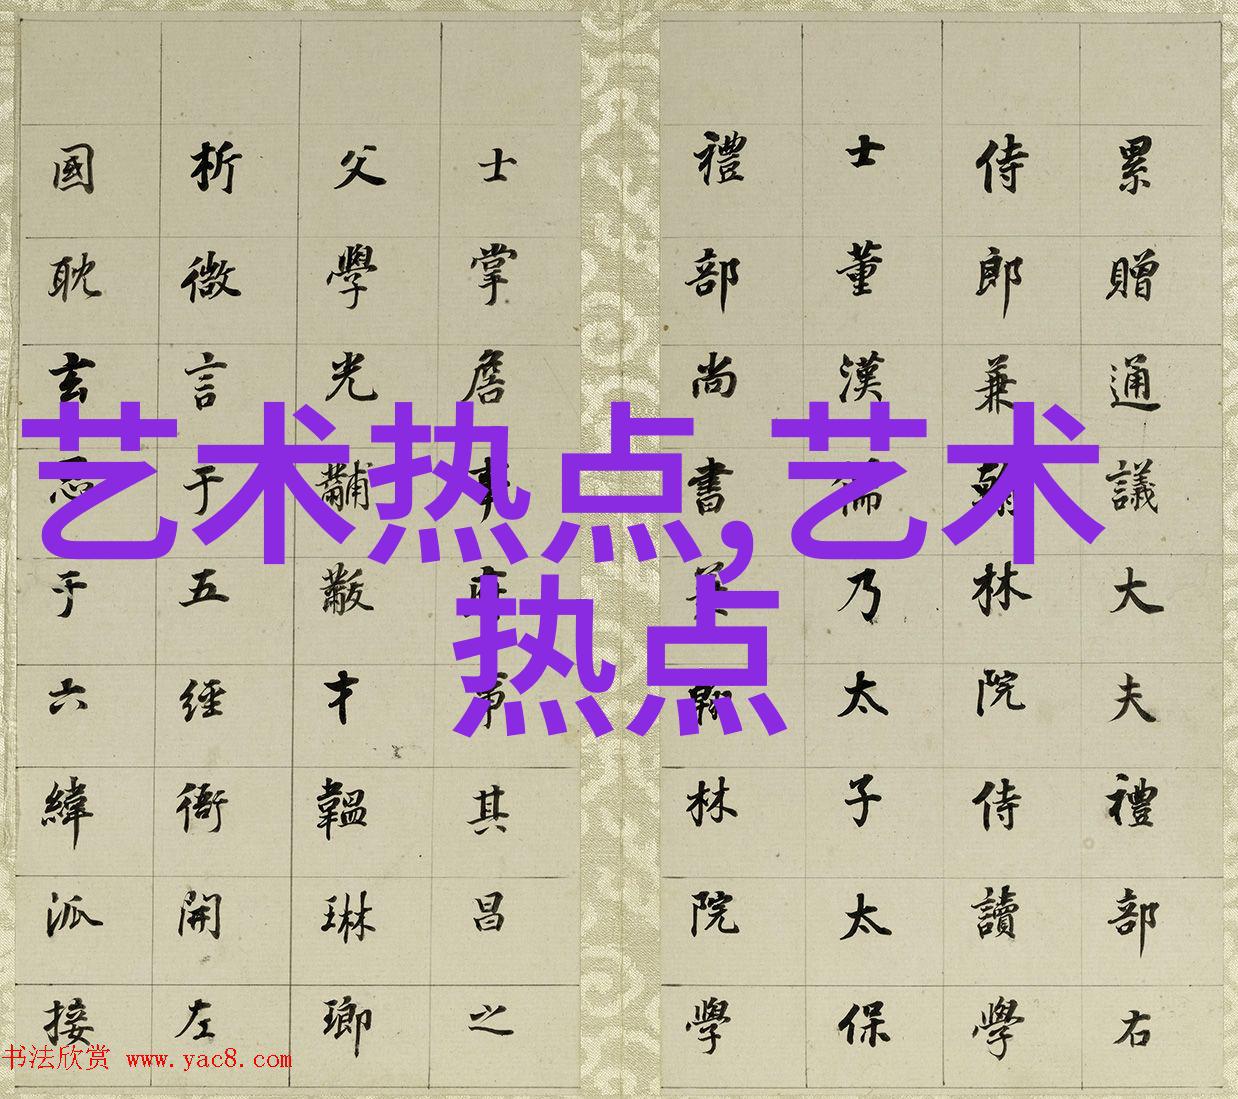 累贈通議大夫禮部右
侍郎兼翰林院侍讀學
士董漢儒乃太子太保
禮部尚書兼翰林院學
士掌詹事府事其昌之
父學光黼黻才韞琳瑯
析微言于五經衙開左
國耽玄思于六緯派接
艺术热点,艺术
热点
书法欣赏 www.yac8.com